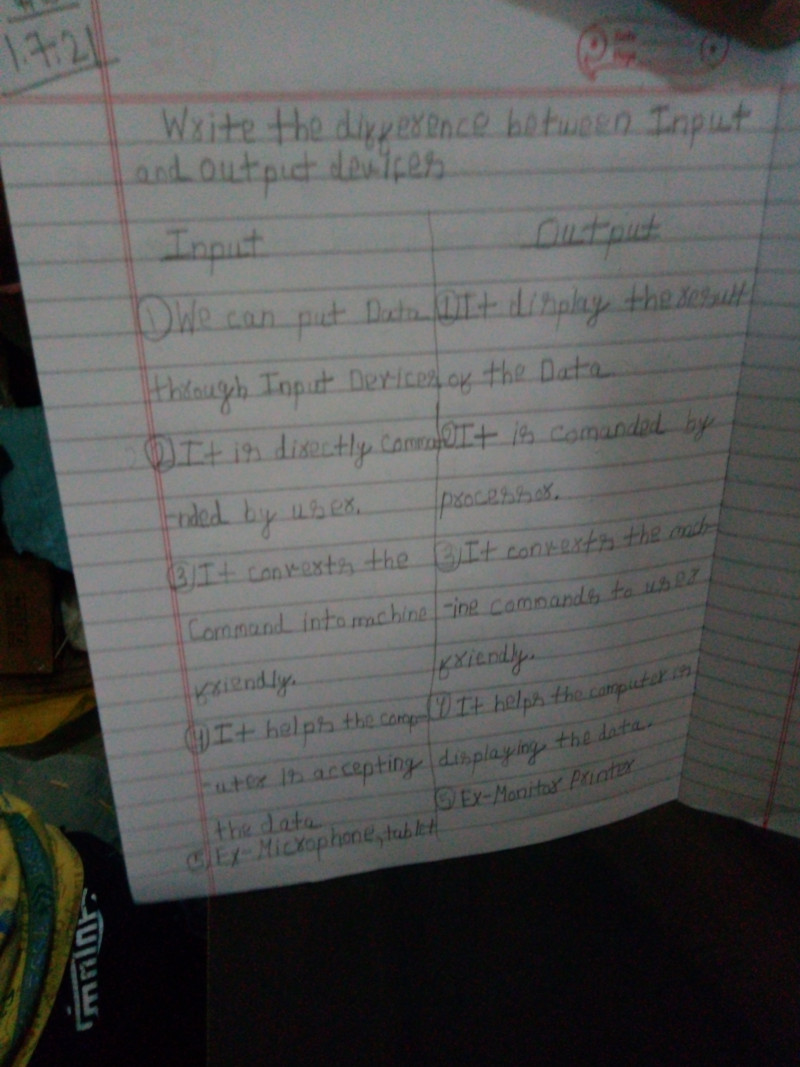 1.7.21
Write the difference between Input
and output devices
Input
Output
① We can put Data
through Input Devices
② It is directly comma
-nded by user.
③ It converts the
Command into machine
friendly.
④ It helps the comp-
-uter in accepting
the data
⑤ Ex-Microphone, tablet
① It display the result
of the Data
② It is comanded by
processor.
③ It converts the mach-
-ine commands to user
friendly.
④ It helps the computer in
displaying the data.
⑤ Ex-Monitor Printer